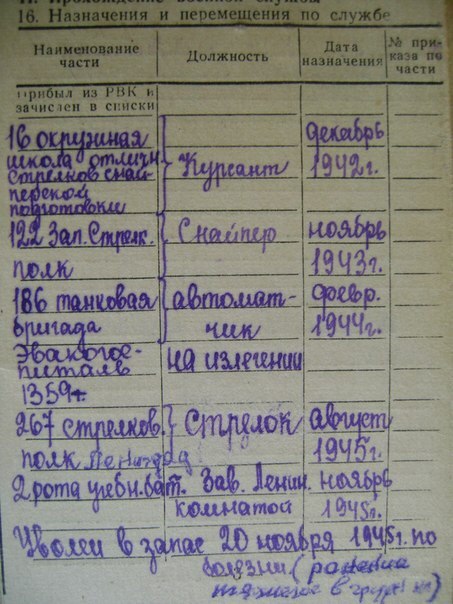 11. Прохождение военной службы
16. Назначения и перемещения по службе
Наименование части
Должность
Дата назначения
№ приказа по части
Прибыл из РВК и
зачислен в списки
16 окружная
школа отличн.
стрелков снай-
перской
подготовки
Курсант
декабрь
1942г.
122 Зап. Стрелк.
полк
Снайпер
ноябрь
1943г.
186 танковая
бригада
автомат-
чик
февр.
1944г.
Эвакогос-
питаль
1359
на излечении
267 стрелков.
полк Ленинград
Стрелок
август
1945г.
2 рота учебн. бат. Зав. Ленин. ноябрь
комнатой 1945г.
Уволен в запас 20 ноября 1945г. по
болезни (ранение
тяжелое в грудь)